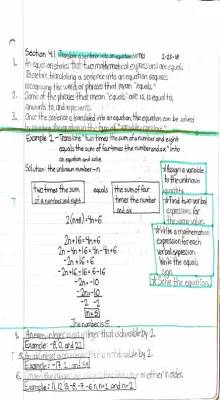 Section 4.1 Translate a sentence into an equation NOTES 2-23-18
1. An equation states that two mathematical expressions are equal.
Therefore, translating a sentence into an equation requires
recognizing the word or phrases that mean "equals."
2. Some of the phrases that mean "equals" are is, is equal to,
amounts to, and represents.
3. Once the sentence is translated into an equation, the equation can be solved
by the equation in the form of
Example 2 - Translate "two times the sum of a number and eight
equals the sum of four times the number and six" into
an equation and solve.
Solution: the unknown number - n
Two times the sum
of a number and eight
equals
the sum of four
times the number
and six
Assign a variable
to the unknown
quantity.
Find two verbal
expressions for
the same value.
Write a mathematical
expression for each
verbal expression.
Write the equals
sign.
Solve the equation.
2(n+8) = 4n+6
2n+16 = 4n+6
2n-4n+16 = 4n-4n+6
-2n+16 = 6
-2n+16-16 = 6-16
-2n = -10
-2n = -10
-2 -2
n = 5
The number is 5.
4. An even integer is an integer that is divisible by 2.
Example: -8, 0, and 22
5. An odd integer is an integer that is not divisible by 2.
Example: -17, 1, and 39
6. Consecutive integers are integers that follow one another in order.
Example: 11, 12, 13 -8, -7, -6 n, n+1, and n+2